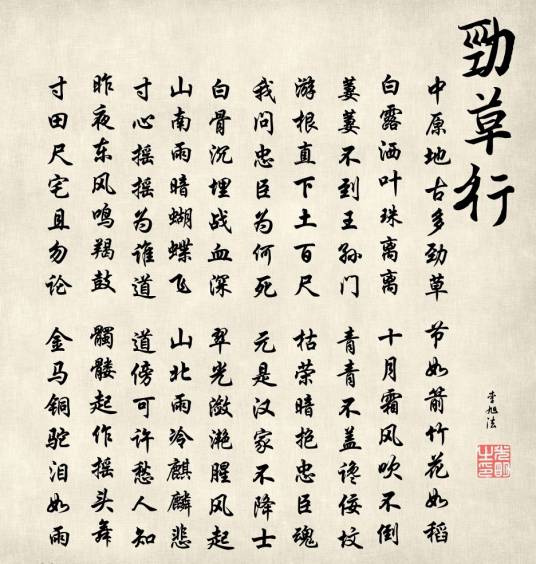 勁草行
中原地古多劲草 节如箭竹花如稻
白露洒叶珠离离 十月霜风吹不倒
萋萋不到王孙门 青青不盖谗佞坟
游根直下土百尺 枯荣暗抱忠臣魂
我问忠臣为何死 元是汉家不降士
白骨沉埋战血深 翠光潋滟腥风起
山南雨暗蝴蝶飞 山北雨冷麒麟悲
寸心摇摇为谁道 道傍可许愁人知
昨夜东风鸣羯鼓 髑髅起作摇头舞
寸田尺宅且勿论 金马铜驼泪如雨
李旭法